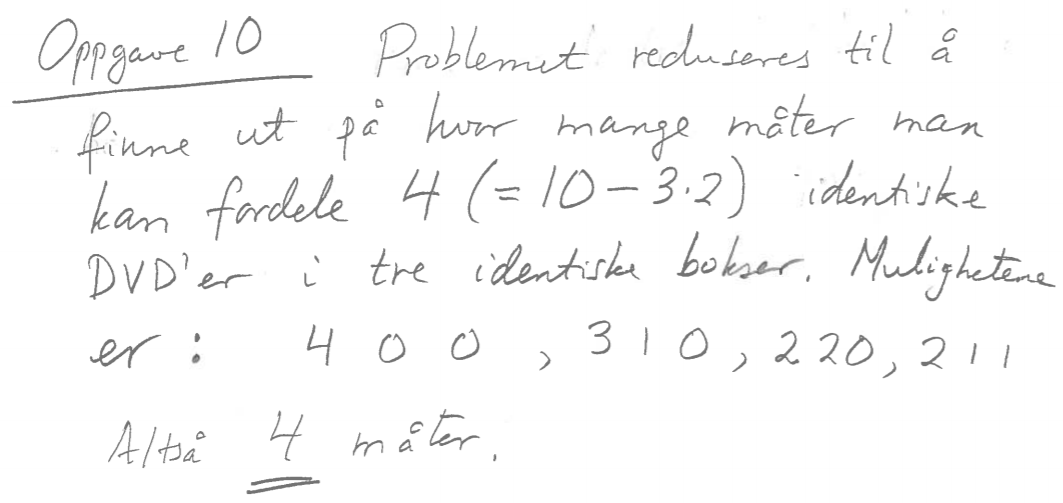 Oppgave 10 Problemet reduseres til å
finne ut på hvor mange måter man
kan fordele 4 (= 10 - 3·2) identiske
DVD'er i tre identiske bokser. Mulighetene
er : 4 0 0 , 3 1 0 , 2 2 0 , 2 1 1
Altså 4 måter.